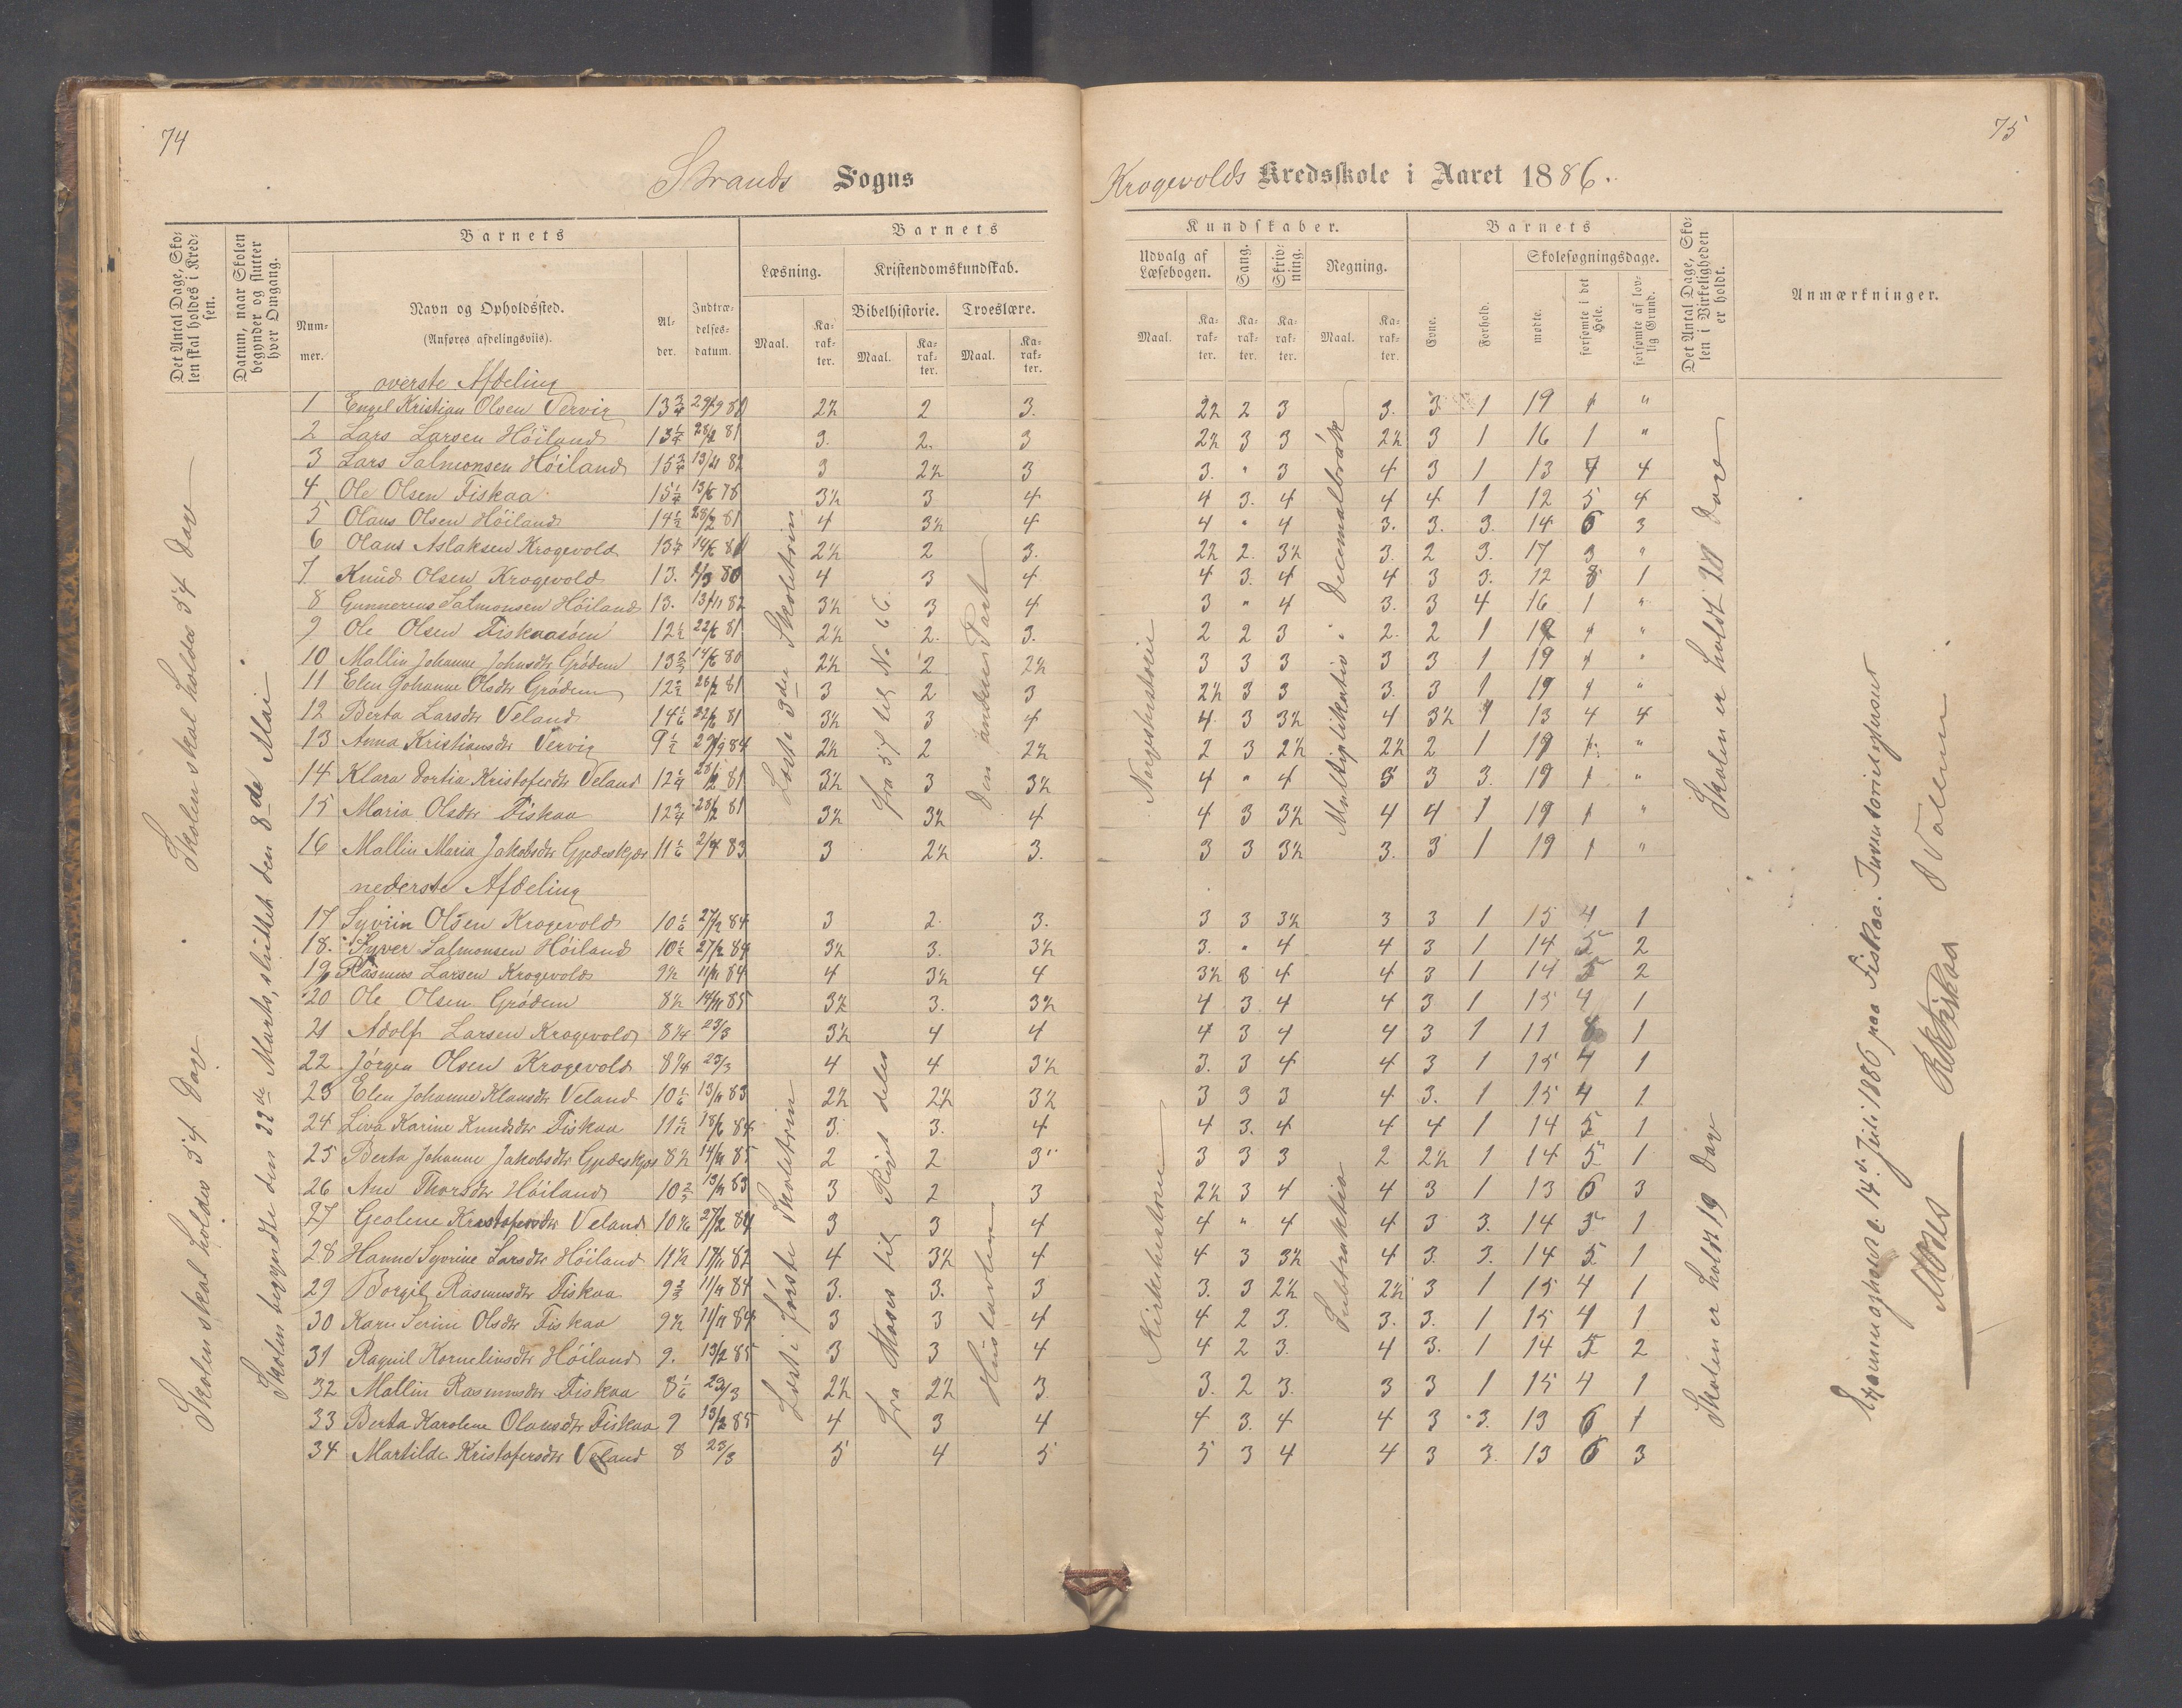 74
75
Strands Sogns
Krogevolds Kredsskole i Aaret 1886.
Det Antal Dage, Skolen skal holdes i Kredsen.
Datum, naar Skolen begynder og slutter hver Omgang.
Barnets
Nummer.
Navn og Opholdssted.
(Anføres afdelingsviis).
Alder.
Indtrædelsesdatum.
Barnets
Læsning.
Kristendomskundskab.
Bibelhistorie.
Troeslære.
Maal. Karakter. Maal. Karakter. Maal. Karakter.
Kundskaber.
Udvalg af Læsebogen.
Sang.
Skrivning.
Regning.
Maal. Karakter. Karakter. Karakter. Maal. Karakter.
Barnets
Evne.
Forhold.
Skolesøgningsdage.
mødte.
forsømte i det Hele.
forsømte af lovlig Grund.
Det Antal Dage, Skolen i Virkeligheden er holdt.
Anmærkninger.
Skolen skal holdes 54 Dage
Skolen skal holdes 54 Dage
Skolen begyndte den 22de Marts, sluttet den 8de Mai
Læste 3die Skoletrin
fra 57 til No 66.
Den anden Part
Norgeshistorie
Multiplikation i Decemalbrøk
Skolen er holdt 20 Dage
Læste første Skoletrin
fra Moses til Riget deles
Hustavlen
Kirkehistorie
Subtraktion
Skolen er holdt 19 Dage
Examen afholdt 14de Juli 1886 paa Fiskaa.
overste Afdeling
1 Engel Kristian Olsen Tervig 13 3/4 29/9 80 2½ 2 3. 2½ 2 3 3. 3. 1 19 1 "
2 Lars Larsen Høiland 13 1/4 28/2 81 3. 2. 3 2½ 3 3 2½ 3 1 16 1 "
3 Lars Salmonsen Høiland 15 3/4 13/11 82 3 2½ 3 3. " 3 4 3 1 13 7 4
4 Ole Olsen Fiskaa 15 1/4 13/6 78 3½ 3 4 4 3. 4 4 4 1 12 5 4
5 Olaus Olsen Høiland 14 1/2 28/2 81 4 3½ 4 4 " 4 3. 3. 3. 14 6 3
6 Olaus Aslaksen Krogevold 13 1/4 14/6 80 2½ 2 3. 2½ 2. 3½ 3. 2 3. 17 3 "
7 Knud Olsen Krogevold 13. 1/3 80 4 3 4 4 3. 4 4 3 3. 12 8 1
8 Gunnerius Salmonsen Høiland 13. 13/11 82 3½ 3 4 3 " 4 3. 3 4 16 1 "
9 Ole Olsen Fiskaasøen 12 1/2 22/6 81 2½ 2. 3. 2 2 3 2. 2 1 19 1 "
10 Mallin Johanne Johnsdtr Grødem 13 2/3 14/6 80 2½ 2 2½ 3 3 3 3 3 1 19 1 "
11 Elen Johanne Olsdtr Grødem 12 1/2 28/2 81 3 2 3 2½ 3 3 3. 3 1 19 1 "
12 Berta Larsdtr Veland 14 1/6 22/6 81 3½ 3 4 4 3 3½ 4 3½ 1 13 4 4
13 Anna Kristiansdtr Tervig 9 1/2 29/9 84 2½ 2 2½ 2 3 2½ 2½ 2 1 19 1 "
14 Klara Dortia Kristofersdtr Veland 12 1/4 28/2 81 3½ 3 3½ 4 " 4 5 3 3. 19 1 "
15 Maria Olsdtr Fiskaa 12 3/4 28/2 81 3½ 3½ 4 4 3 3½ 4 4 1 19 1 "
16 Mallin Maria Jakobsdtr Gjedeskjær 11 1/6 2/4 83 3 2½ 3. 3 3 3½ 3. 3 1 19 1 "
nederste Afdeling
17 Syvrin Olsen Krogevold 10 1/6 27/2 84 3 2. 3. 3 3 3½ 3 3 1 15 4 1
18. Syver Salmonsen Høiland 10 1/2 27/2 84 3½ 3. 3½ 3. " 4 4 3 1 14 5 2
19 Rasmus Larsen Krogevold 9½ 11/11 84 4 3½ 4 3½ 3 4 4 3 1 14 5 2
20 Ole Olsen Grødem 8½ 14/11 85 3½ 3. 3½ 4 3. 4 4 3 1 15 4 1
21 Adolf Larsen Krogevold 8¼ 23/3 3½ 4 4 4 3 4 4 3 1 11 8 1
22 Jørgen Olsen Krogevold 8¼ 23/3 4 4 3½ 3. 3 4 4 3 1 15 4 1
23 Elen Johanne Klausdtr Veland 10 1/6 13/11 83 2½ 2½ 3½ 3 3 3 4 3. 1 15 4 1
24 Liva Karine Knudsdtr Fiskaa 11 1/12 18/6 84 3. 3. 4 4 3. 4 4 4 1 14 5 1
25 Berta Johanne Jakobsdtr Gjedeskjær 8½ 14/11 85 2 2 3 3 3 3 2 2½ 1 14 5 1
26 Ane Thorsdtr Høiland 10 2/3 13/11 83 3 2 3 2½ 3 4 4 3 1 13 6 3
27 Geoline Kristofersdtr Veland 10 1/6 27/2 84 3 3 4 4 " 4 4 3 3. 14 5 1
28 Hanne Syvrine Larsdtr Høiland 11½ 17/11 82 4 3½ 4 4 3 3½ 4 3. 3. 14 5 1
29 Borgil Rasmusdtr Fiskaa 9 2/3 11/11 84 3. 3. 3 3. 3 2½ 2½ 3 1 15 4 1
30 Karen Serine Olsdtr Fiskaa 9½ 11/11 84 3 3 4 4 2 3. 3. 3. 1 15 4 1
31 Ragnil Kornelinsdtr Høiland 9. 13/2 85 3 3 4 4 2 3. 4 3. 1 14 5 2
32 Mallin Rasmusdtr Fiskaa 8 1/6 23/3 2½ 2½ 3 3. 2 3. 3 3 1 15 4 1
33 Berta Karoline Olausdtr Fiskaa 9 13/2 85 4 3 4 4 3. 4 4 3 3. 13 6 1
34 Martilde Kristofersdtr Veland 8 23/3 5 4 5 5 3 4 4 3 3. 13 6 3